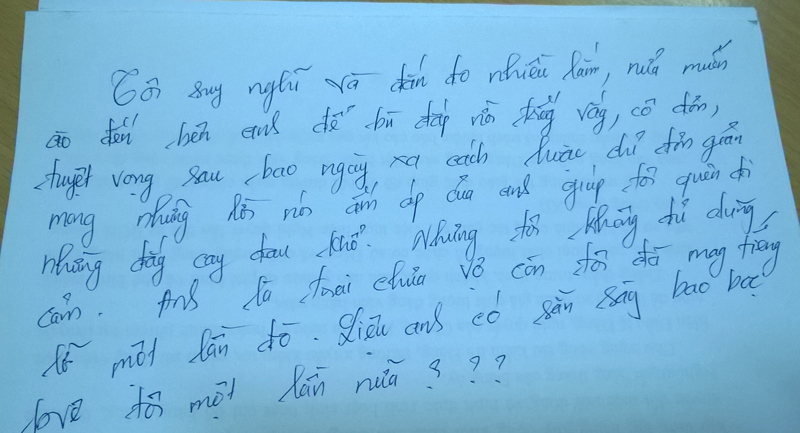 Tôi suy nghĩ và đắn đo nhiều lắm, nửa muốn
ào đến bên anh để bù đắp nỗi trống vắng, cô đơn,
tuyệt vọng sau bao ngày xa cách hoặc chỉ đơn giản
mong những lời nói ấm áp của anh giúp tôi quên đi
những đắng cay đau khổ. Nhưng tôi không đủ dũng
cảm. Anh là trai chưa vợ còn tôi đã mag tiếng
lỡ một lần đò. Liệu anh có sẵn sàg bao bọc
tôi một lần nữa ? ? ?